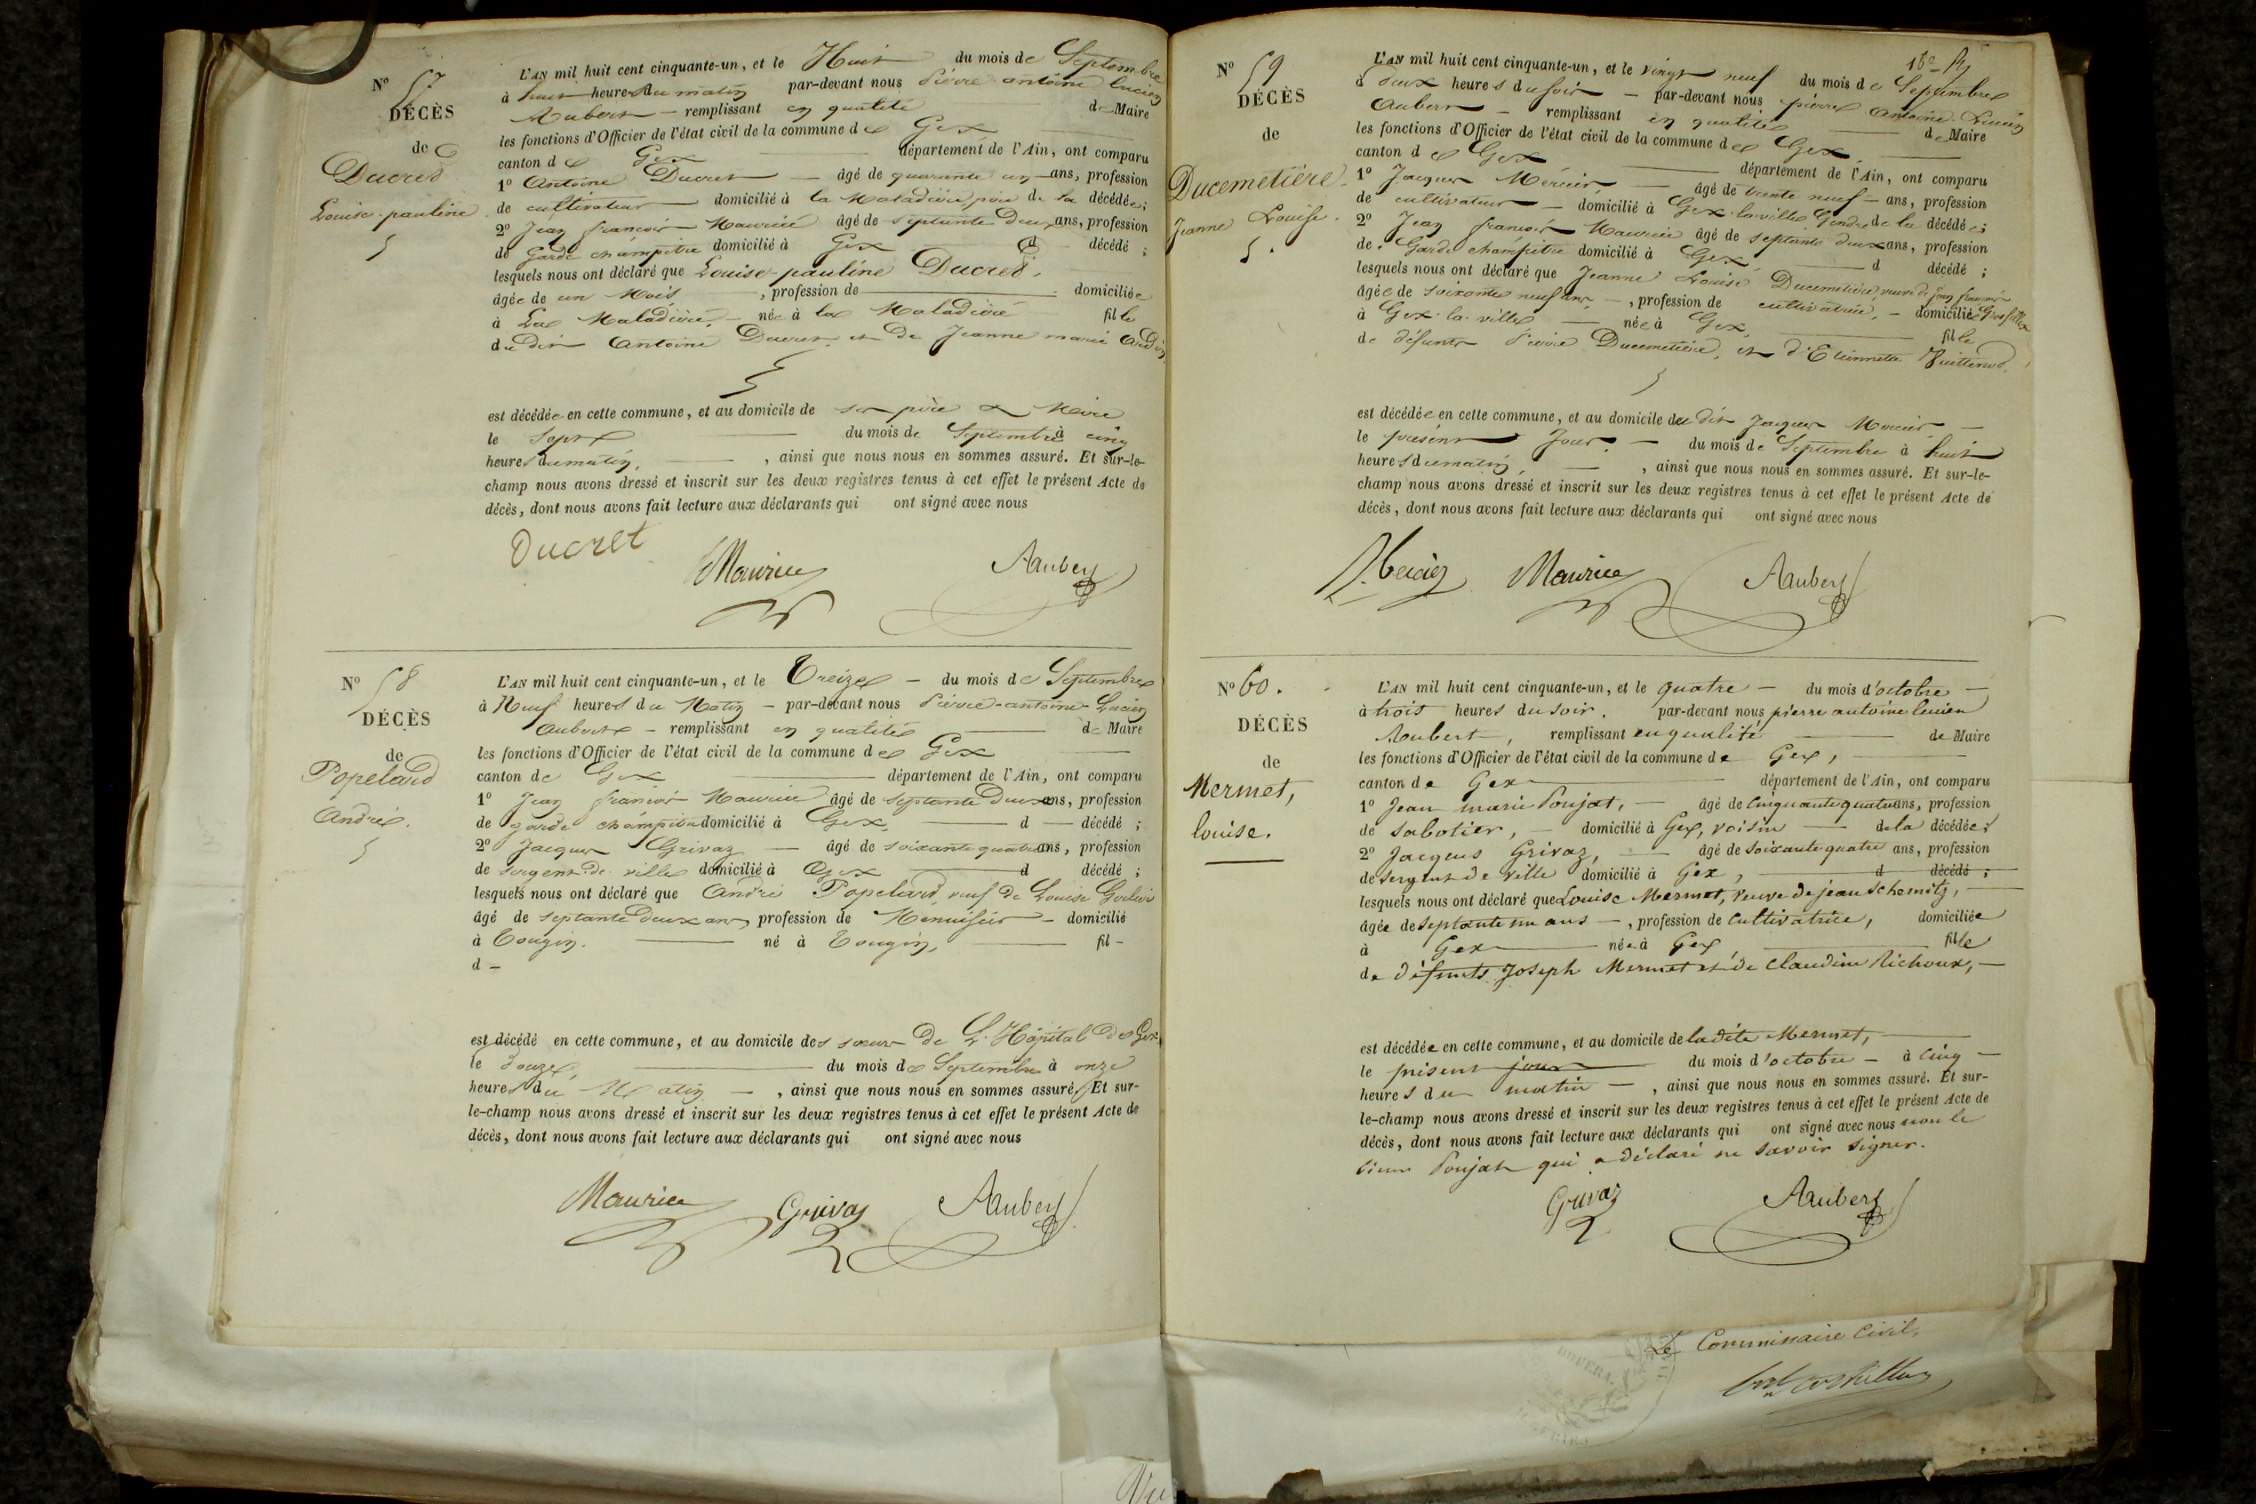 N° 57
DÉCÈS
de
Ducred
Louise-pauline
L'AN mil huit cent cinquante-un, et le Huit du mois de Septembre
à huit heures du matin par-devant nous Pierre antoine Lucien
Aubert – remplissant en qualité de Maire
les fonctions d'Officier de l'état civil de la commune de Gex
canton de Gex département de l'Ain, ont comparu
1° Antoine Ducret – âgé de quarante un ans, profession
de cultivateur domicilié à la Maladière, père de la décédée;
2° Jean françois Maurice âgé de septante Deux ans, profession
de Garde champêtre domicilié à Gex d décédé ;
lesquels nous ont déclaré que Louise-pauline Ducred.
âgée de un Mois , profession de domiciliée
à La Maladière, – née à la Maladière fille
du dit Antoine Ducret et de Jeanne marie
est décédée en cette commune, et au domicile de ses père & Mère
le Sept du mois de Septembre à cinq
heures du matin, , ainsi que nous nous en sommes assuré. Et sur-le-
champ nous avons dressé et inscrit sur les deux registres tenus à cet effet le présent Acte de
décès, dont nous avons fait lecture aux déclarants qui ont signé avec nous
Ducret Maurice Aubert
N° 58
DÉCÈS
de
Popelard
André.
L'AN mil huit cent cinquante-un, et le Treize – du mois de Septembre
à Neuf heures du Matin – par-devant nous Pierre-antoine-Lucien
Aubert – remplissant en qualité de Maire
les fonctions d'Officier de l'état civil de la commune de Gex
canton de Gex département de l'Ain, ont comparu
1° Jean françois Maurice âgé de septante Deux ans, profession
de garde champêtre domicilié à Gex, d – décédé ;
2° Jacques Grivaz – âgé de soixante quatre ans, profession
de sergent de ville domicilié à Gex d décédé ;
lesquels nous ont déclaré que André Popelard veuf de Louise
âgé de septante deux ans, profession de Menuisier – domicilié
à Tougin. né à Tougin, fil –
d –
est décédé en cette commune, et au domicile des sœurs De L'Hôpital de Gex
le douze, du mois de Septembre à onze
heures du Matin – , ainsi que nous nous en sommes assuré. Et sur-
le-champ nous avons dressé et inscrit sur les deux registres tenus à cet effet le présent Acte de
décès, dont nous avons fait lecture aux déclarants qui ont signé avec nous
Maurice Grivaz Aubert
N° 59
DÉCÈS
de
Ducemetière
Jeanne Louise.
L'AN mil huit cent cinquante-un, et le vingt neuf du mois de Septembre
à deux heures du soir – par-devant nous pierre Antoine Lucien
Aubert – remplissant en qualité de Maire
les fonctions d'Officier de l'état civil de la commune de Gex
canton de Gex département de l'Ain, ont comparu
1° Jacques Mercier – âgé de trente neuf – ans, profession
de cultivateur – domicilié à Gex-la-ville Gendre de la décédée;
2° Jean françois Maurice âgé de septante deux ans, profession
de Garde champêtre domicilié à Gex, d décédé ;
lesquels nous ont déclaré que Jeanne Louise Ducemetière, veuve de jean françois
Grosfillex
âgée de soixante neuf ans – , profession de cultivatrice, – domiciliée
à Gex-la-ville – née à Gex, fille
de défunts Pierre Ducemetière, et d'Etiennette Vuittenod.
est décédée en cette commune, et au domicile du dit Jacques Mercier –
le présent Jour – du mois de Septembre à huit
heures du matin, – , ainsi que nous nous en sommes assuré. Et sur-le-
champ nous avons dressé et inscrit sur les deux registres tenus à cet effet le présent Acte de
décès, dont nous avons fait lecture aux déclarants qui ont signé avec nous
Mercier Maurice Aubert
N° 60.
DÉCÈS
de
Mermet,
louise.
L'AN mil huit cent cinquante-un, et le quatre – du mois d'octobre –
à trois heures du soir. par-devant nous pierre antoine lucien
Aubert, remplissant en qualité de Maire
les fonctions d'Officier de l'état civil de la commune de Gex,
canton de Gex département de l'Ain, ont comparu
1° Jean marie Poujat, – âgé de cinquante quatre ans, profession
de sabotier, – domicilié à Gex, voisin – de la décédée;
2° Jacques Grivaz, – âgé de soixante quatre ans, profession
de sergent de ville domicilié à Gex, d décédé ;
lesquels nous ont déclaré que Louise Mermet, veuve de jean Schemitz,
âgée de septante un ans – , profession de cultivatrice, domiciliée
à Gex née à Gex fille
de défunts Joseph Mermet et de Claudine Richoux, –
est décédée en cette commune, et au domicile de ladite Mermet,
le présent jour du mois d'octobre – à cinq –
heures du matin – , ainsi que nous nous en sommes assuré. Et sur-
le-champ nous avons dressé et inscrit sur les deux registres tenus à cet effet le présent Acte de
décès, dont nous avons fait lecture aux déclarants qui ont signé avec nous non le
sieur Poujat qui a déclaré ne savoir signer.
Grivaz Aubert
Le Commissaire Civil,